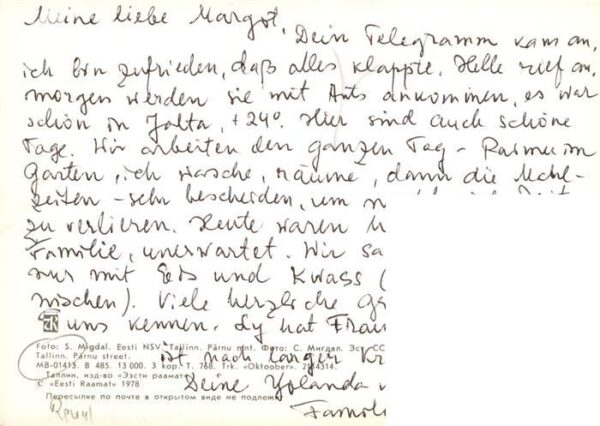 Meine liebe Margot,
Dein Telegramm kam an,
ich bin zufrieden, daß alles klappte. Helle rief an,
morgen werden sie mit Ants ankommen, es war
schön in Jalta, +24°. Hier sind auch schöne
Tage. Wir arbeiten den ganzen Tag - Raimu im
Garten, ich wasche, räume, dann die Mahl-
zeiten - sehr bescheiden, um
zu verlieren. Heute waren
Familie, unerwartet. Wir
nur mit Eis und Kwass (
mischen). Viele herzliche
uns kennen. Ly hat Frau
Foto: S. Migdal. Eesti NSV. Tallinn. Pärnu mnt. Фото: С. Мигдал. Эст. СС
Tallinn. Pärnu street.
ist nach langer
MB-01413. B 485. 13 000. 3 kop. T. 768. Trk. «Oktoober». 2114314.
Таллин, изд-во «Ээсти раамат»
© «Eesti Raamat» 1978
Deine Yolanda
Пересылке по почте в открытом виде не подлежи
Reval
Famili